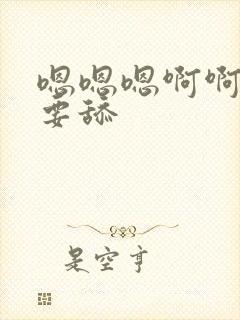 嗯嗯嗯啊啊
要舔
是空亨